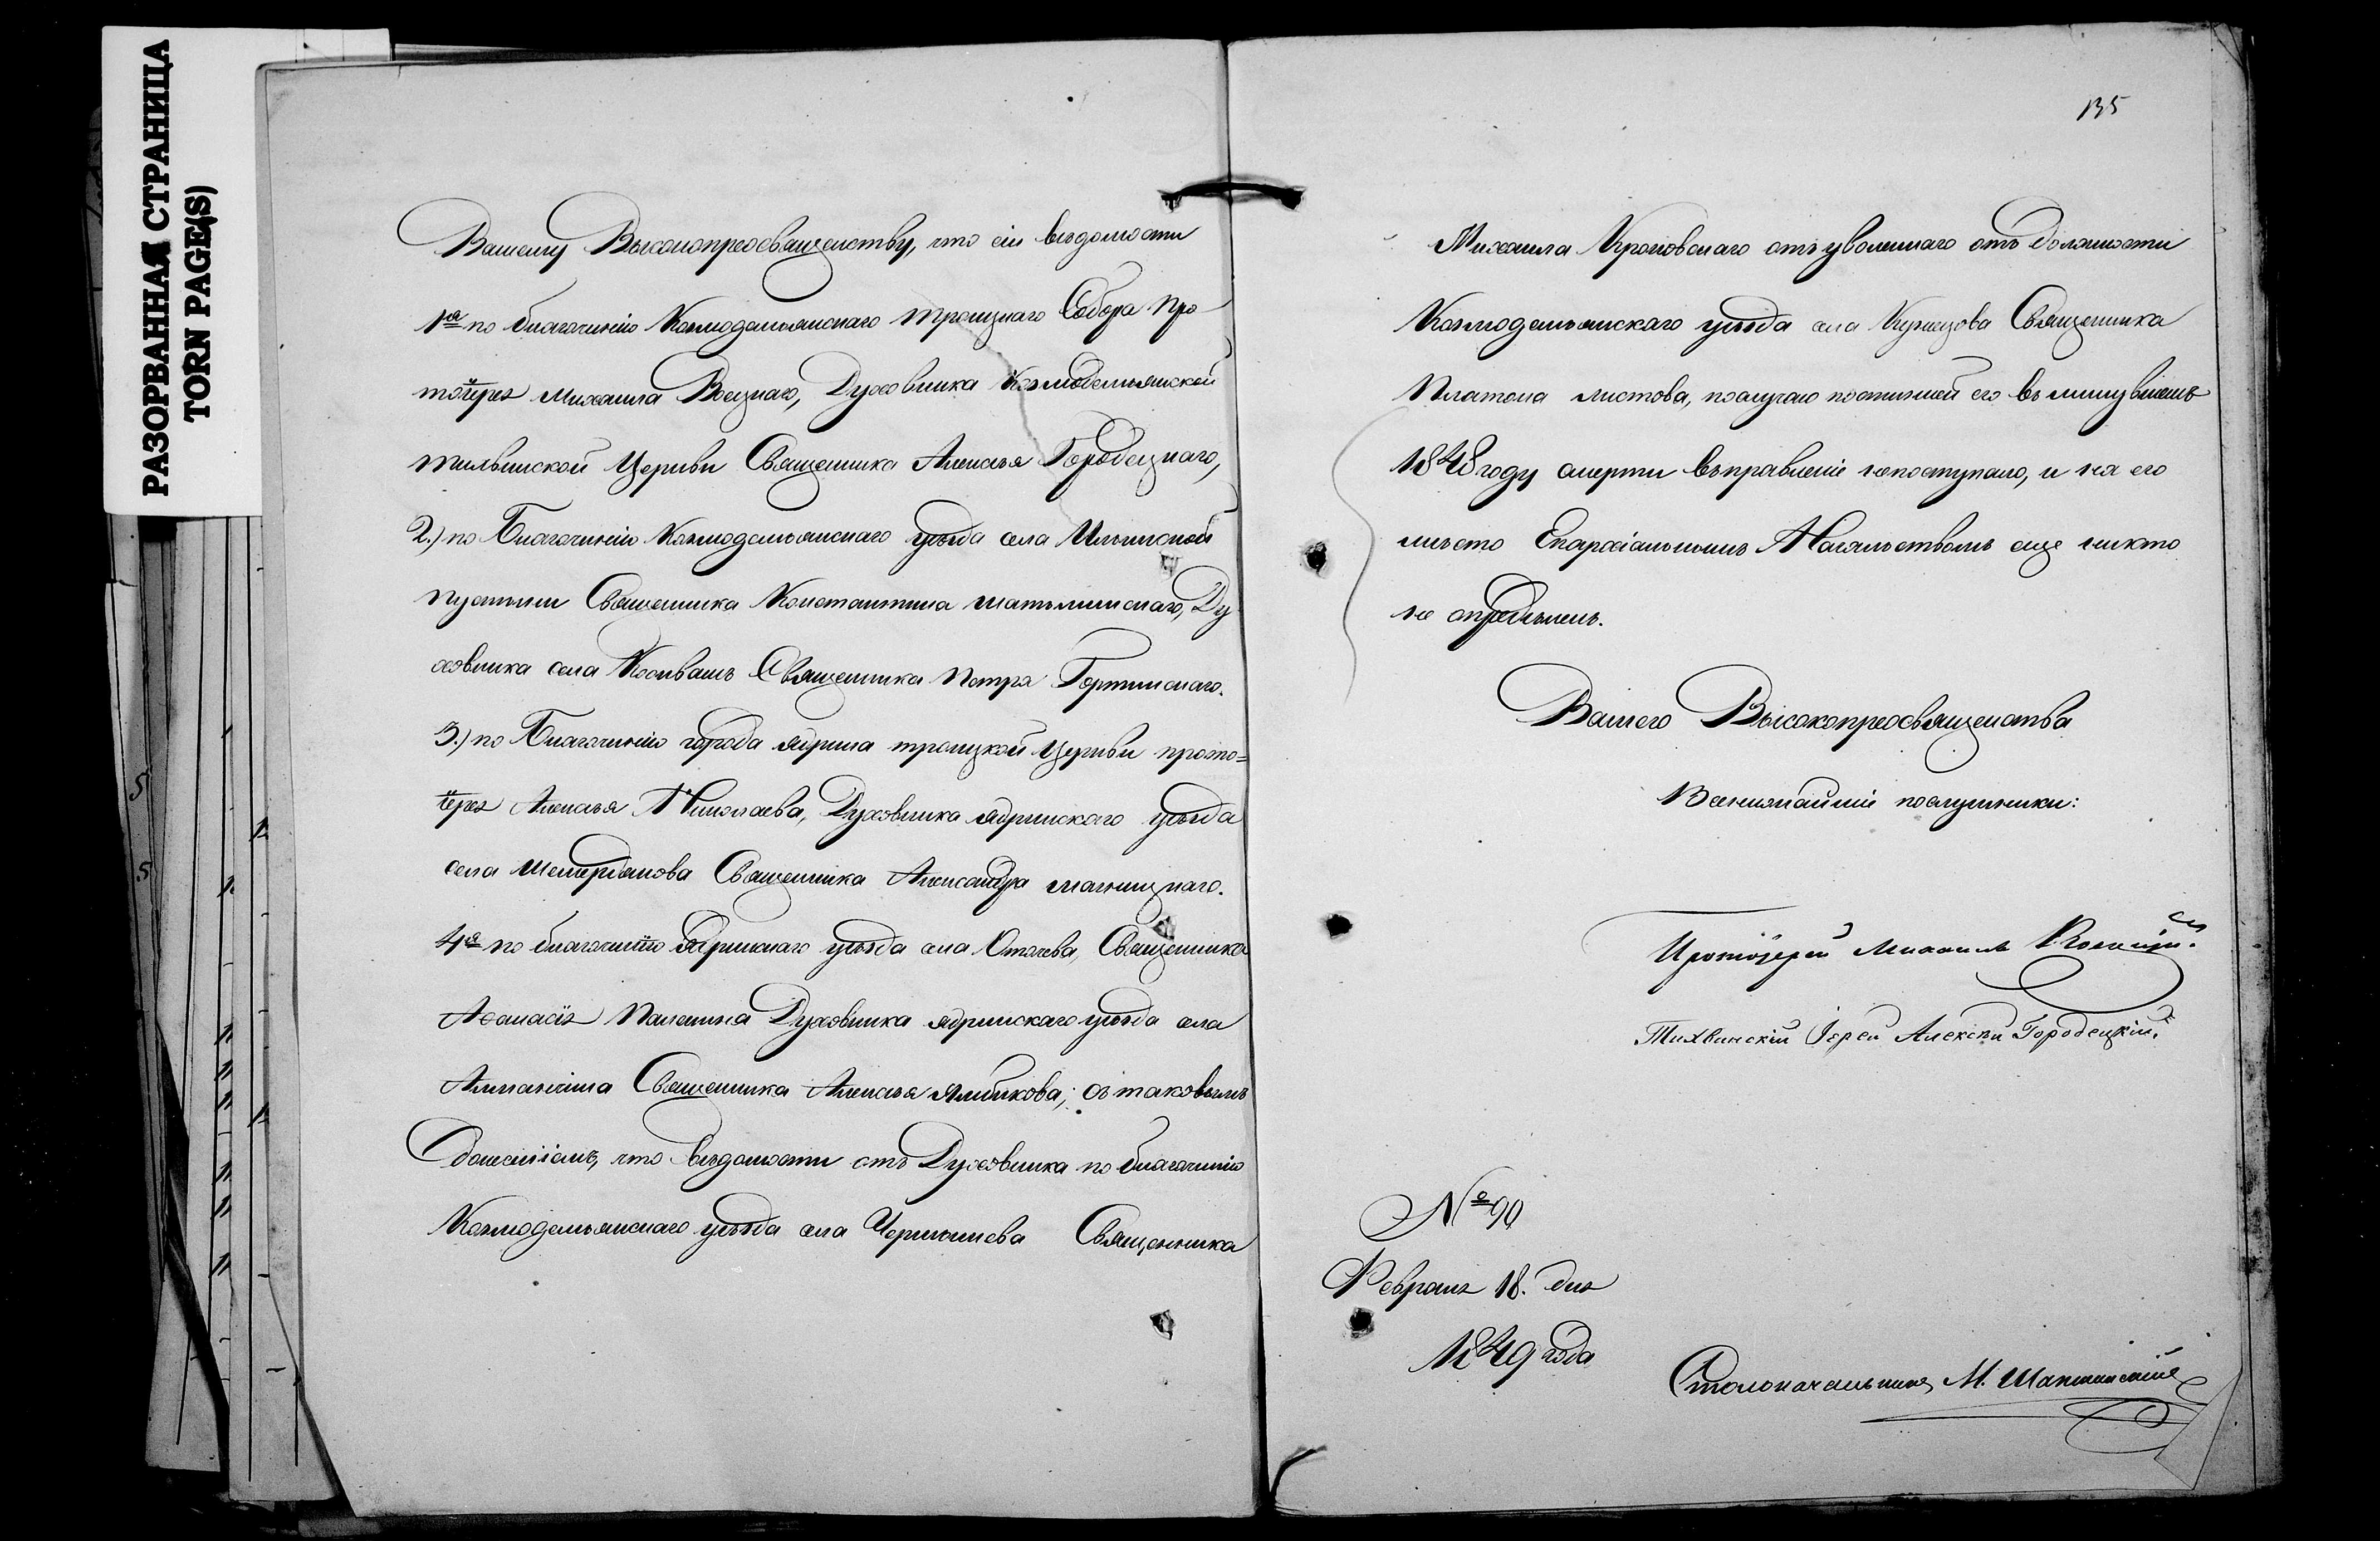 РАЗОРВАННАЯ СТРАНИЦА
TORN PAGE(S)
Вашему Высокопреосвященству, что сiи вѣдомости
1я по благочинiю Козмодемьянскаго Троицкаго Собора Про
тоiерея Михаила Воецкаго, Духовника Козмодемьянской
тихвинской Церкви Священника Алексѣя Городецкаго,
2.) по Благочинiю Козмодемьянскаго уѣзда села Ильинской
пустыни Священника Константина Ду
ховника села Священника Петра
3.) по Благочинiю города Ядрина троицкой Церкви прото=
iерея Алексѣя Николаева, Духовника ядринскаго уѣзда
села Шемердянова Священника Александра
4я по благочинiю Ядринскаго уѣзда села Отачева, Священника
Аѳанасiя Ду­ховника ядринскаго уѣзда села
Алманчина Священника Алексѣя с таковымъ
донесенiемъ, что вѣдомости отъ Духовника по благочинiю
Козмодемьянскаго уѣзда села Чермышева Священника
135
Михаила Кроковскаго отъ уволеннаго отъ должности
Козмодемьянскаго уѣзда села Кузнецова Священника
Платона Листова, по случаю постигшей его въ минувшемъ
1848 году смерти въ правленiе непоступало, и на его
мѣсто Епархiальнымъ Начальствомъ еще никто
не опредѣленъ.
Вашего Высокопреосвященства
Всенижайшiе послушники:
Протоiерей Михаилъ
Тихвинскiй Iерей Алексѣй Городецкiй.
№ 90
Февраля 18. дня
1849 года
Столоначальникъ М.